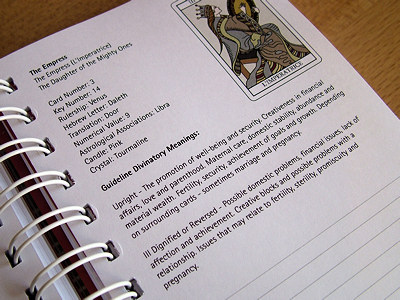 L'IMPERATRICE
The Empress
The Empress (L'Imperatrice)
The Daughter of the Mighty Ones
Card Number: 3
Key Number: 14
Rulership: Venus
Hebrew Letter: Daleth
Translation: Door
Numerical Value: 9
Astrological Associations: Libra
Candle: Pink
Crystal: Tourmaline
Guideline Divinatory Meanings:
Upright - The promotion of well-being and security. Creativeness in financial
affairs, love and parenthood. Maternal care, domestic stability, abundance and
material wealth. Fertility, security, achievement of goals and growth. Depending
on surrounding cards - sometimes marriage and pregnancy.
Ill Dignified or Reversed - Possible domestic problems, financial issues, lack of
affection and achievement. Creative blocks and possible problems with a
relationship. Issues that may relate to fertility, sterility, promiscuity and
pregnancy.